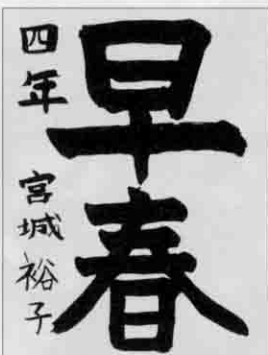 早春
四年 宮城裕子